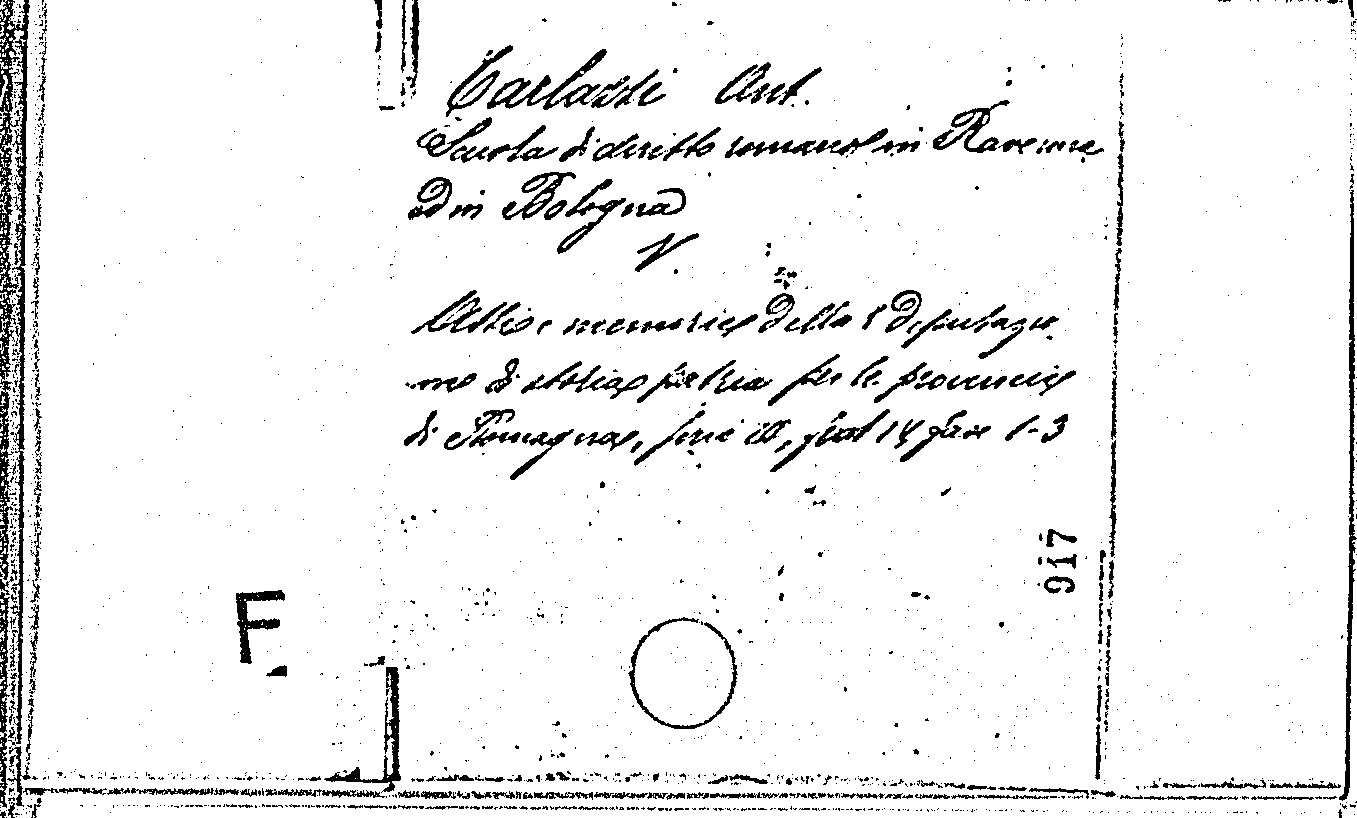 Tarlazzi Ant.
Scuola di diritto romano in Ravenna
ed in Bologna
V.
Atti e memorie della r Deputazio
ne di storia patria per le provincie
di Romagna, serie III, vol 14 fasc 1-3
917
F